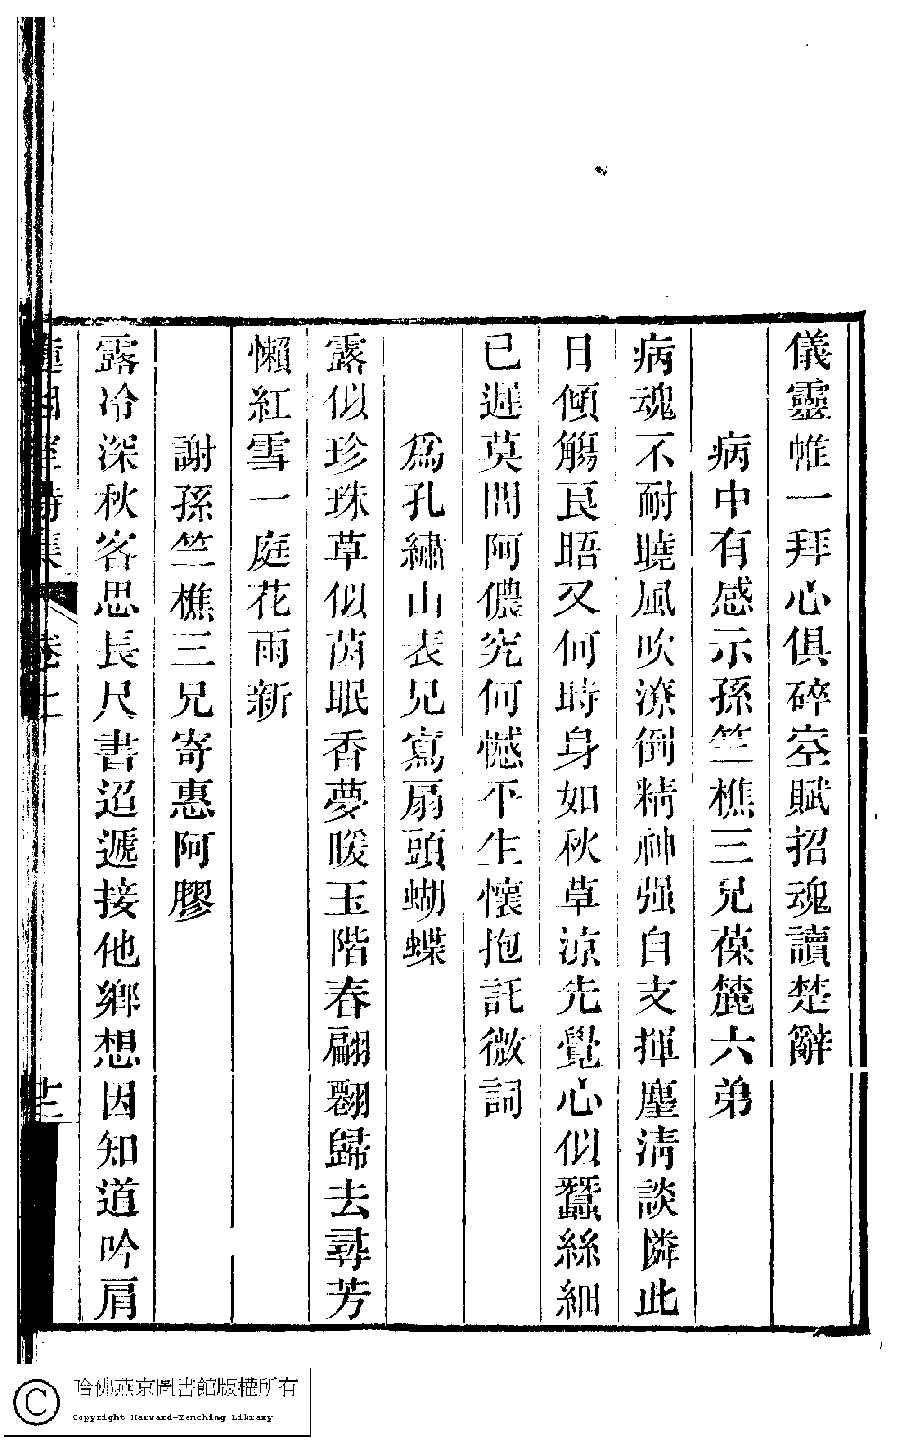 儀靈帷一拜心俱碎空賦招魂讀楚辭
病中有感示孫竺樵三兄葆麓六弟
病魂不耐曉風吹潦倒精神强自支揮塵清談憐此
日傾觴良晤又何時身如秋草涼先覺心似蠶絲細
已遲莫問阿儂究何憾不生懷抱託微詞
爲孔繡山表兄寫扇頭蝴蝶
露似珍珠草似茵眠香夢暖玉階春翩翾歸去尋芳
懶紅雪一庭花雨新
謝孫竺樵三兄寄惠阿膠
露冷深秋客思長尺書迢遞接他鄉想因知道吟肩
詩集 卷上
廿一
哈佛燕京圖書館版權所有
Copyright Harvard-Yenching Library